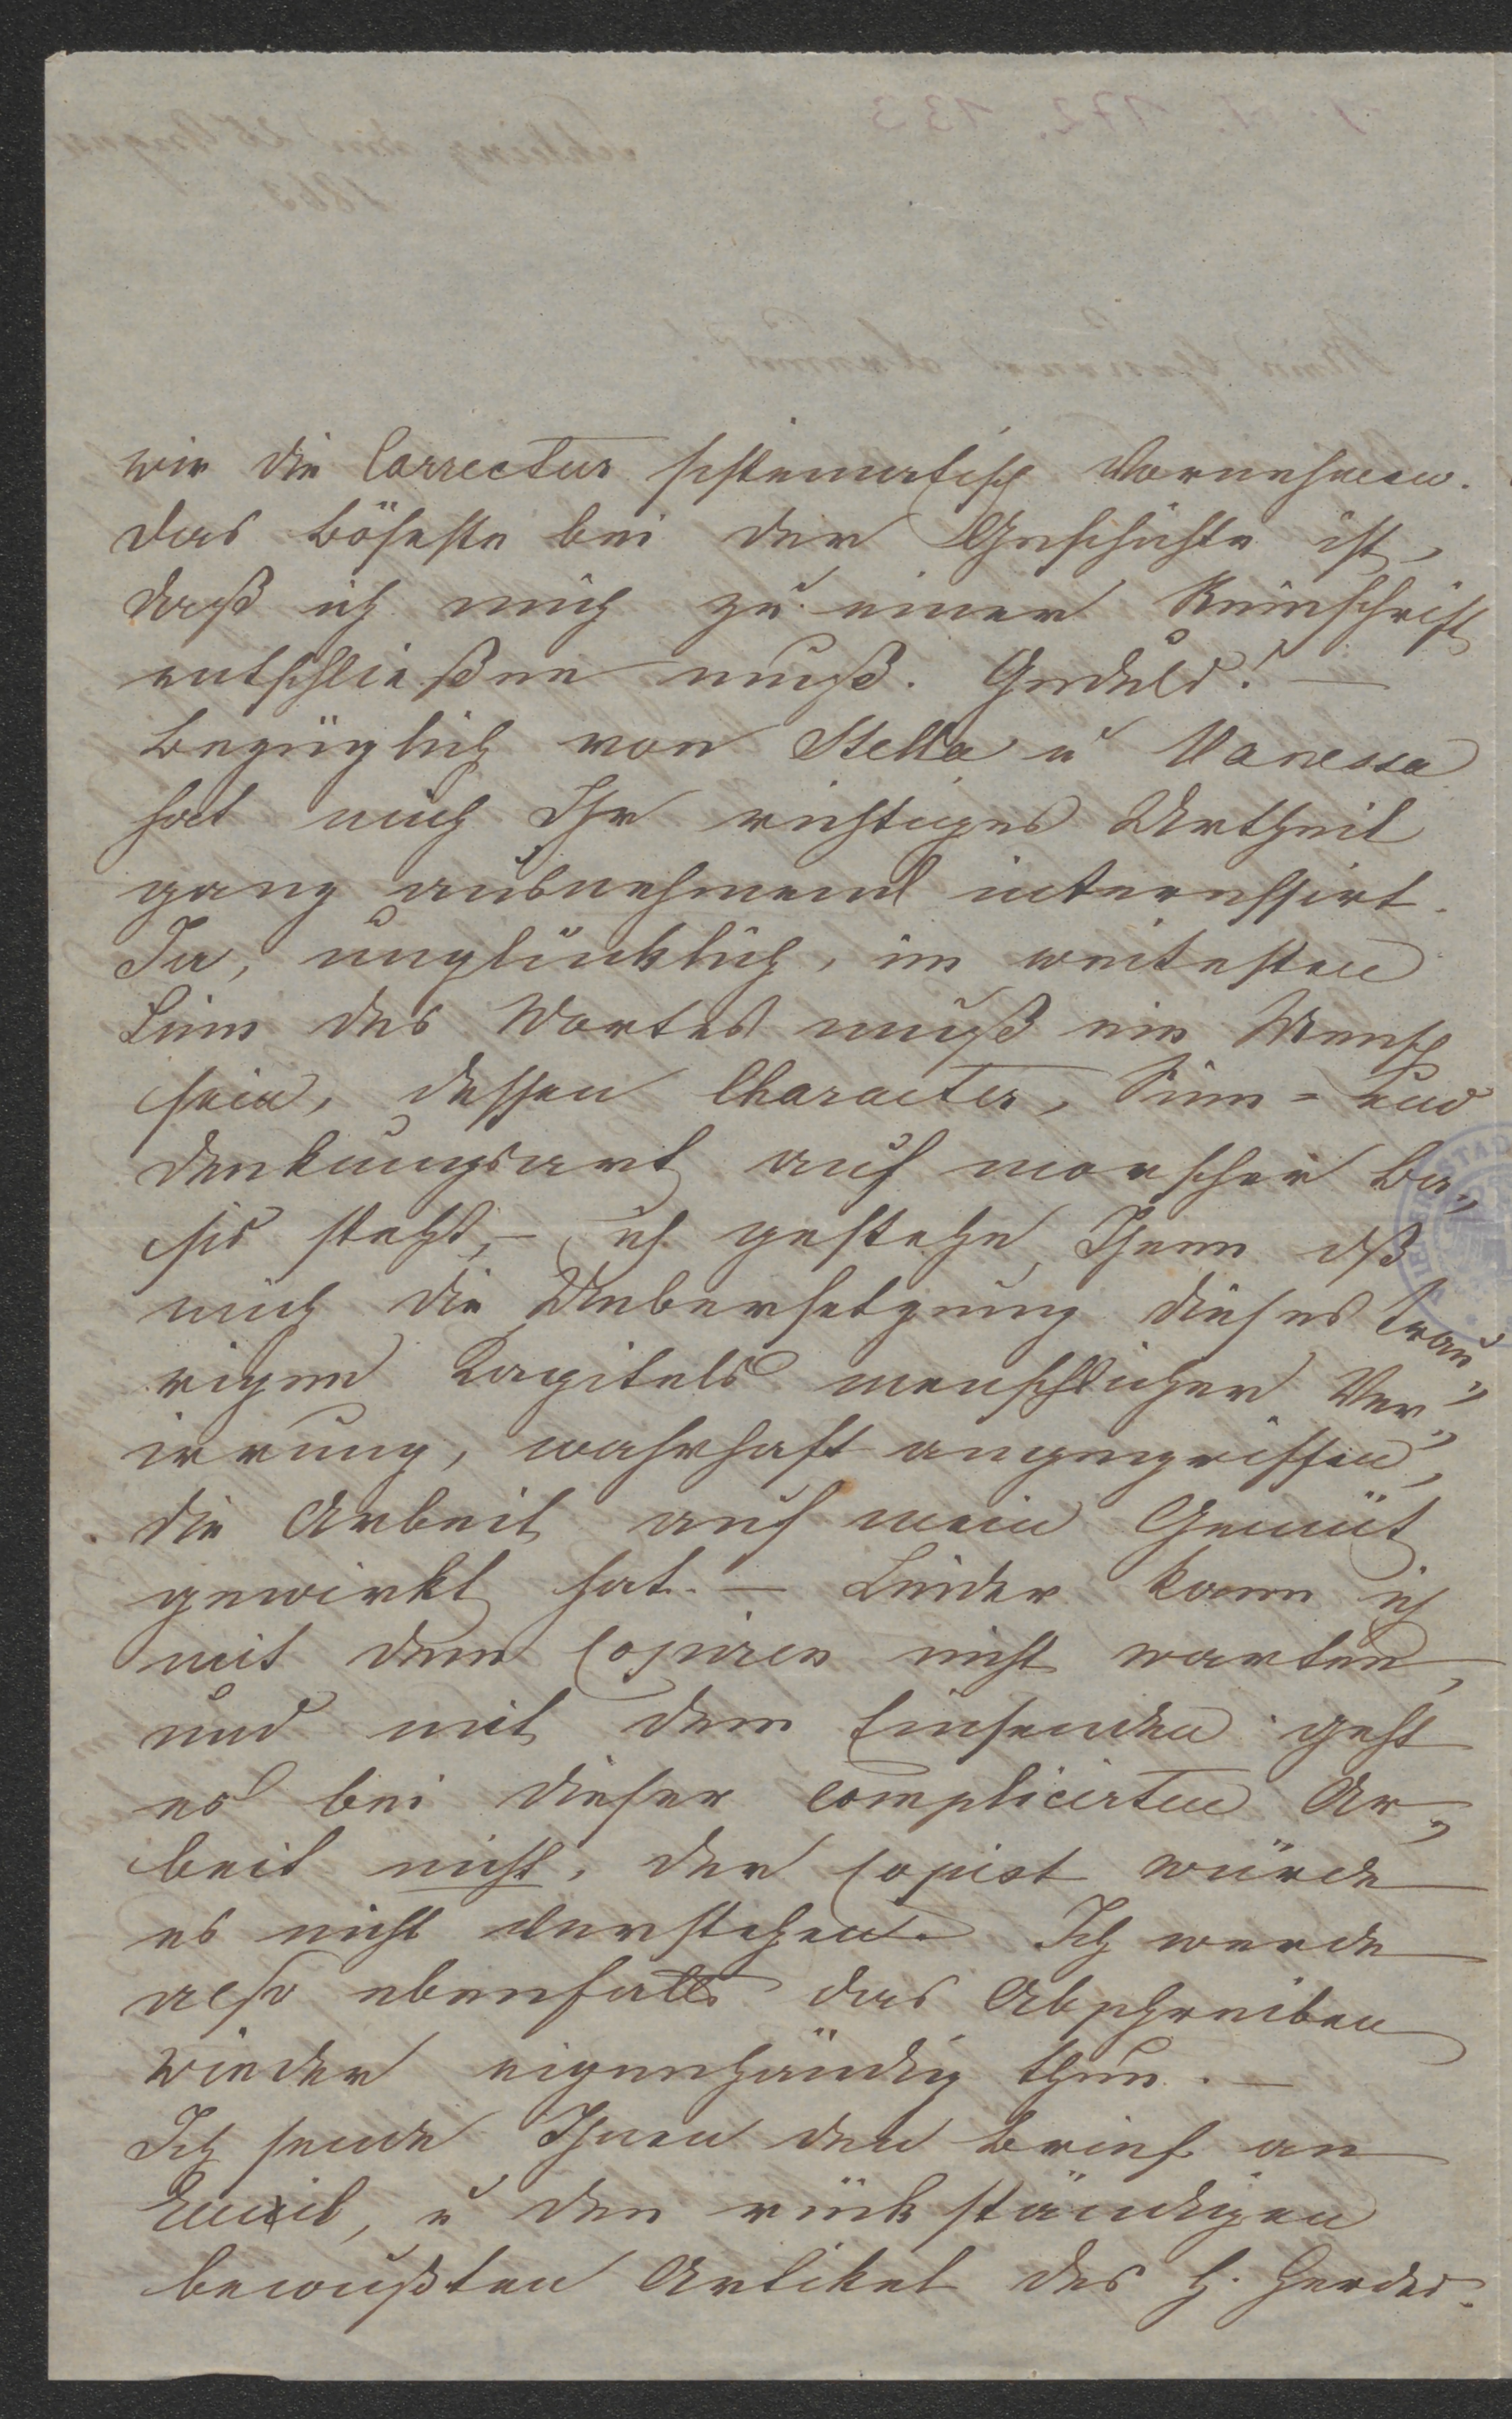 wir die Correctur sistematisch vornehmen.
Das böseste bei der Geschichte ist,
daß ich mich zu einer Reinschrift
entschließen muß. Geduld! —
Bezüglich von Stella u Vanessa
hat mich Ihr richtiges Urtheil
ganz ausnehmend interessirt.
Ja, unglücklich, im weitesten
Sinn des Wortes muß ein Mensch
sein, dessen Character, Sinn= und
Denkungsart auf morscher Ba„
sis steht, — ich gestehe Ihnen dß
mich die Uebersetzung dieses trau„
rigen Kapitels menschlicher Ver„
irrung, wahrhaft angegriffen,
die Arbeit auf mein Gemüt
gewirkt hat. — Leider kann ich
mit dem Copiren nicht warten,
und mit dem Einsenden geht
es bei dieser complicirten Ar„
beit nicht, der Copist würde
es nicht verstehen. Ich werde
also ebenfalls das Abschreiben
wieder eigenhändig thun. —
Ich sende Ihnen den Brief an
Emil, u den rückständigen
bewußten Artikel des H.